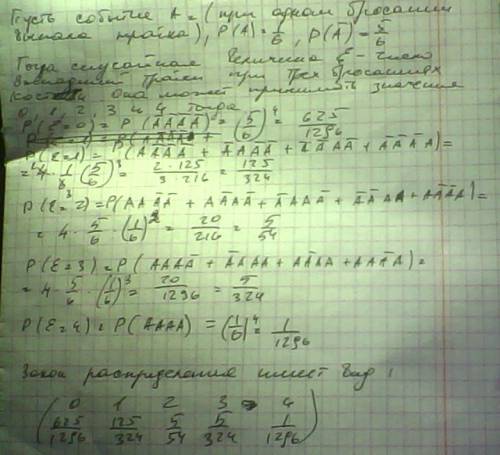 Пусть событие A = (при одном бросании
выпала тройка), P(A) = 1/6, P(Ā) = 5/6
Тогда случайная величина ξ - число
выпадений тройки при трех бросаниях
кости. Она может принимать значения
0, 1, 2, 3 и 4 тогда
P(ξ=0) = P(ĀĀĀĀ) = (5/6)^4 = 625/1296
P(ξ=1) = P(AĀĀĀ + ĀAĀĀ + ĀĀAĀ + ĀĀĀA) =
= 4 · 1/6 (5/6)^3 = 2 · 125 / 3 · 216 = 125/324
P(ξ=2) = P(AAĀĀ + AĀAĀ + ĀAAĀ + ĀAĀA + ĀĀAA) =
= 4 · 5/6 · (1/6)^2 = 20/216 = 5/54
P(ξ=3) = P(AAAĀ + ĀAAA + AĀAA + AAĀA) =
= 4 · 5/6 · (1/6)^3 = 20/1296 = 5/324
P(ξ=4) = P(AAAA) = (1/6)^4 = 1/1296
Закон распределения имеет вид:
0 1 2 3 4
625/1296 125/324 5/54 5/324 1/1296